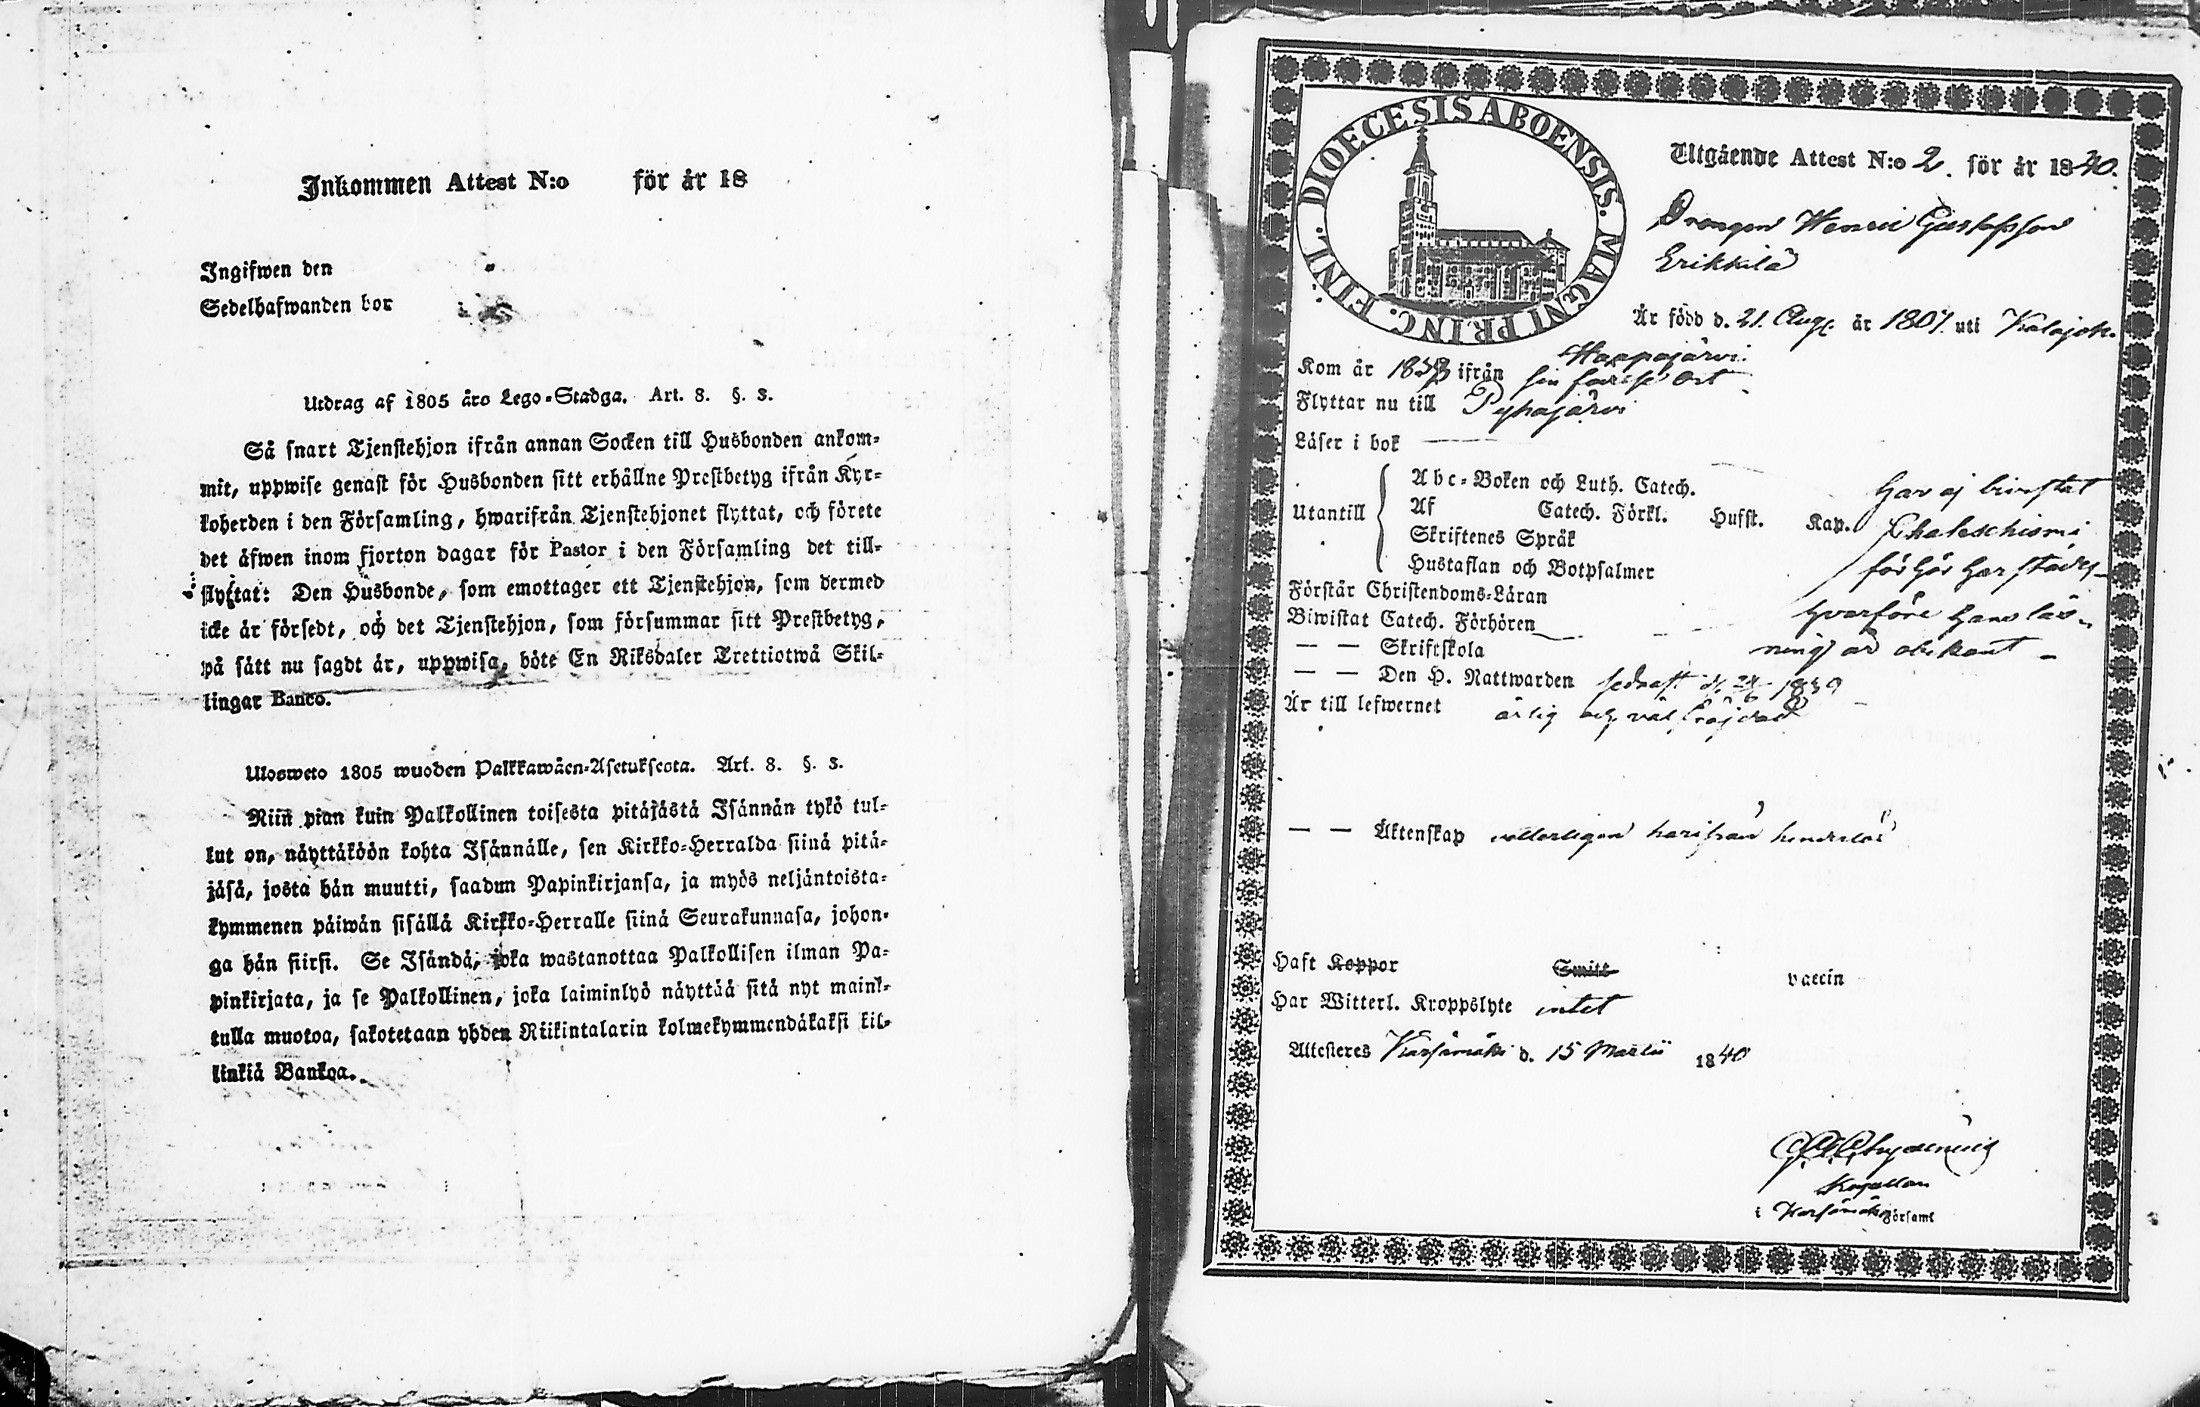 Inkommen Attest N:o för år 18
Ingifwen den
Sedelhafwanden bor
Utdrag af 1805 års Lego-Stadga. Art. 8. §. 3.
Så snart Tjenstehjon ifrån annan Socken till Husbonden ankom-
mit, uppwise genast för Husbonden sitt erhållne Prestbetyg ifrån Kyr-
koherden i den Församling, hwarifrån Tjenstehjonet flyttat, och förete
det äfwen inom fjorton dagar för Pastor i den Församling det till-
flyttat: Den Husbonde, som emottager ett Tjenstehjon, som dermed
icke är försedt, och det Tjenstehjon, som försummar sitt Prestbetyg,
på sätt nu sagdt är, uppwisa, böte En Riksdaler Trettiotwå Skil-
lingar Banco.
Ulosweto 1805 wuoden Palkkawäen-Asetuksesta. Art. 8. §. 3.
Niin pian kuin Palkollinen toisesta pitäjästä Isännän tykö tul-
lut on, näyttäköön kohta Isännälle, sen Kirkko-Herralda siinä pitä-
jäsä, josta hän muutti, saadun Papinkirjansa, ja myös neljäntoista-
kymmenen päiwän sisällä Kirkko-Herralle siinä Seurakunnasa, johon-
ga hän siirsi. Se Isändä, joka wastanottaa Palkollisen ilman Pa-
pinkirjata, ja se Palkollinen, joka laiminlyö näyttää sitä nyt mainit-
tulla muotoa, sakotetaan yhden Riikintalarin kolmekymmendäkaksi kil-
linkiä Bankoa.
DIOECESIS ABOENSIS. MAGNI PRINC. FINL.
Utgående Attest N:o 2. för år 1840.
Drengen Henric Gustafsson
Erikkilä
Är född d. 21. Aug. år 1807. uti Kalajok.
Haapajärvi
Kom år 1838 ifrån sin födelse Ort
Flyttar nu till Pyhajärvi
Läser i bok
Utantill
Abc-Boken och Luth. Catech.
Af Catech. Förkl. Husst. Kap.
Skriftenes Språk
Hustaflan och Botpsalmer
har ej bivistat
Chateschismi
förhör härstädes
hvarföre hans läs-
ning är obekant
Förstår Christendoms-Läran
Biwistat Catech. Förhören
— — Skriftskola
— — Den H. Nattwarden sednast d. 24/6 1839
Är till lefwernet ärlig och väl fräjdad
— — Äktenskap härifrån hinderlös
Haft Koppor Smitt vaccin
Har Witterl. Kroppslyte intet
Attesteres Karsämäki d. 15 Martii 1840
Kapellan
i Karsämäki Församl